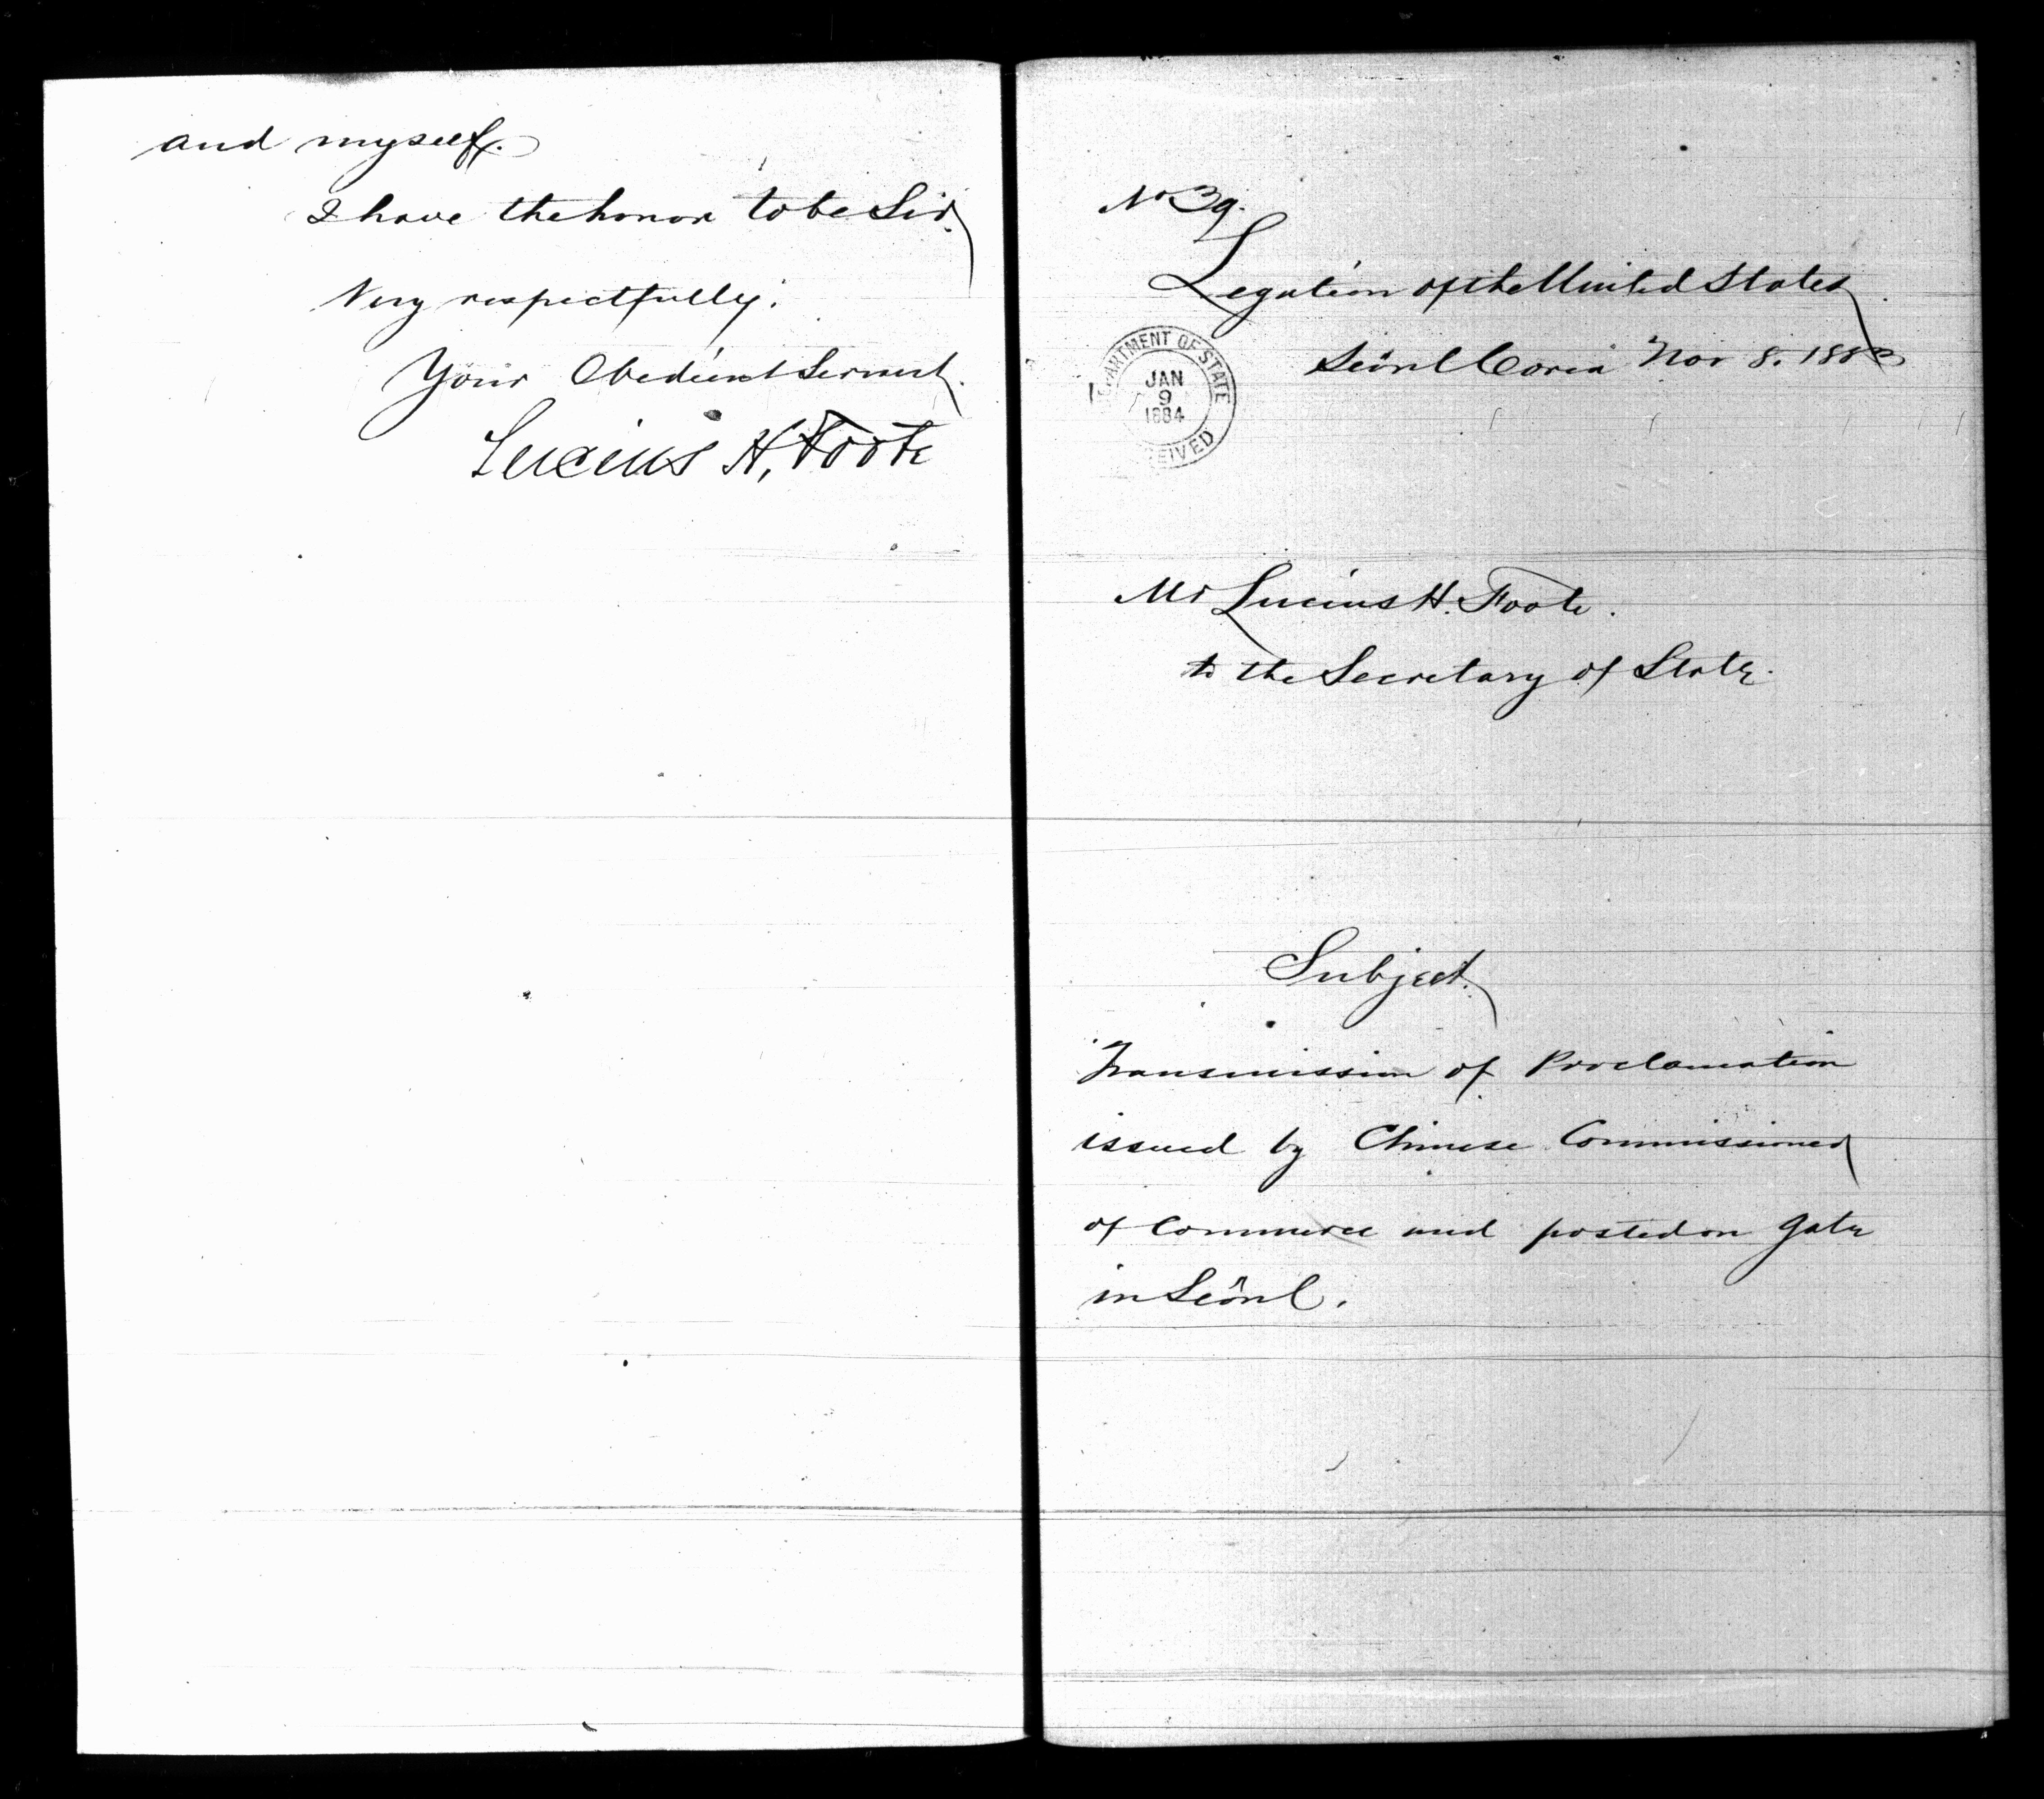 and myself.
I have the honor to be Sir.
Very respectfully.
Your Obedient Servant.
Lucius H. Foote
No 39.
Legation of the United States
Seôul Corea Nov 8. 1883
DEPARTMENT OF STATE
JAN
9
1884
RECEIVED
Mr Lucius H. Foote.
to the Secretary of State.
Subject.
Transmission of Proclamation
issued by Chinese Commissioner
of Commerce and posted on gate
in Seôul.